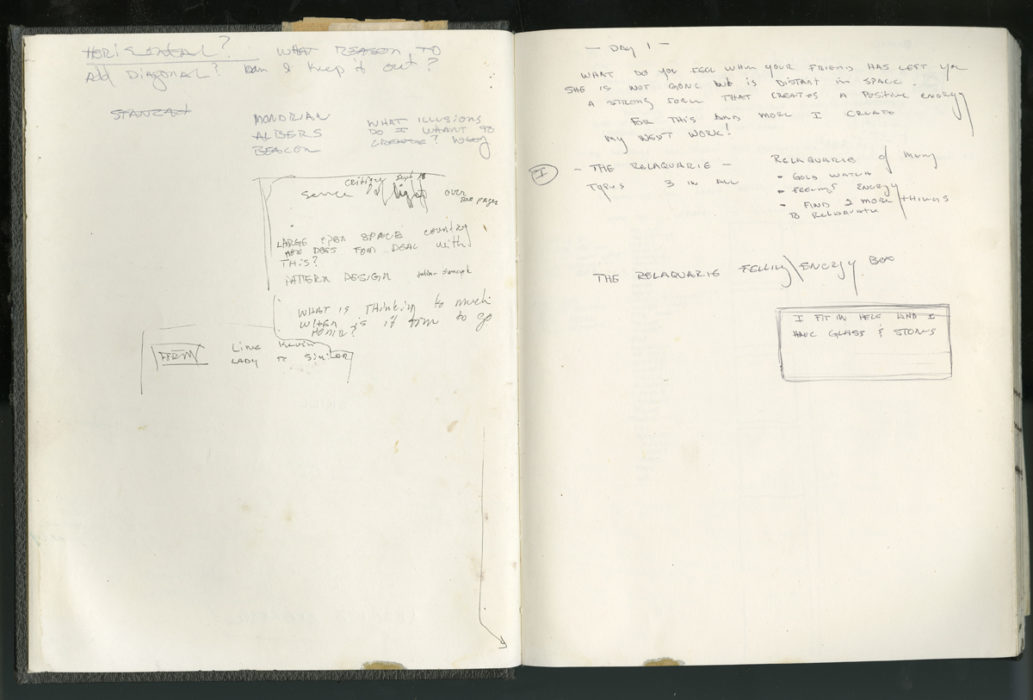 Horisontal? WHAT REASON TO
Add DIAGONAL? Can I keep it out?
STANZAH
MONDRIAN
ALBERS
BEACON
WHAT ILLUSIONS
DO I WHANT TO
CREATE?
critique Sept 18
sence of light
over
two pages
LARGE OPEN SPACE country
DOES TOM DEAL with
THIS?
PATTERN DESIGN
WHAT IS THINKIN to much
WHEN is it time to go
HOME?
FORM
LINE
LADY SIMILAR
— DAY 1 —
WHAT DO YOU FEEL WHEN YOUR FRIEND HAS LEFT YOU
SHE IS NOT GONE but IS DISTANT in SPACE
A STRONG FORM THAT CREATES A POSITIVE ENERGY
FOR THIS AND MORE I CREATE
MY NEXT WORK!
I
- THE RELAQUARIE -
TYPES 3 IN ALL
RELAQUARIE of Many
- GOLD WATCH
- FEELINGS ENERGY
- FIND 2 MORE THINGS
TO RELAQUARIE
THE RELAQUARIE FELLING ENERGY BOX
I FIT IN HERE AND I
HAVE GLASS & STONES